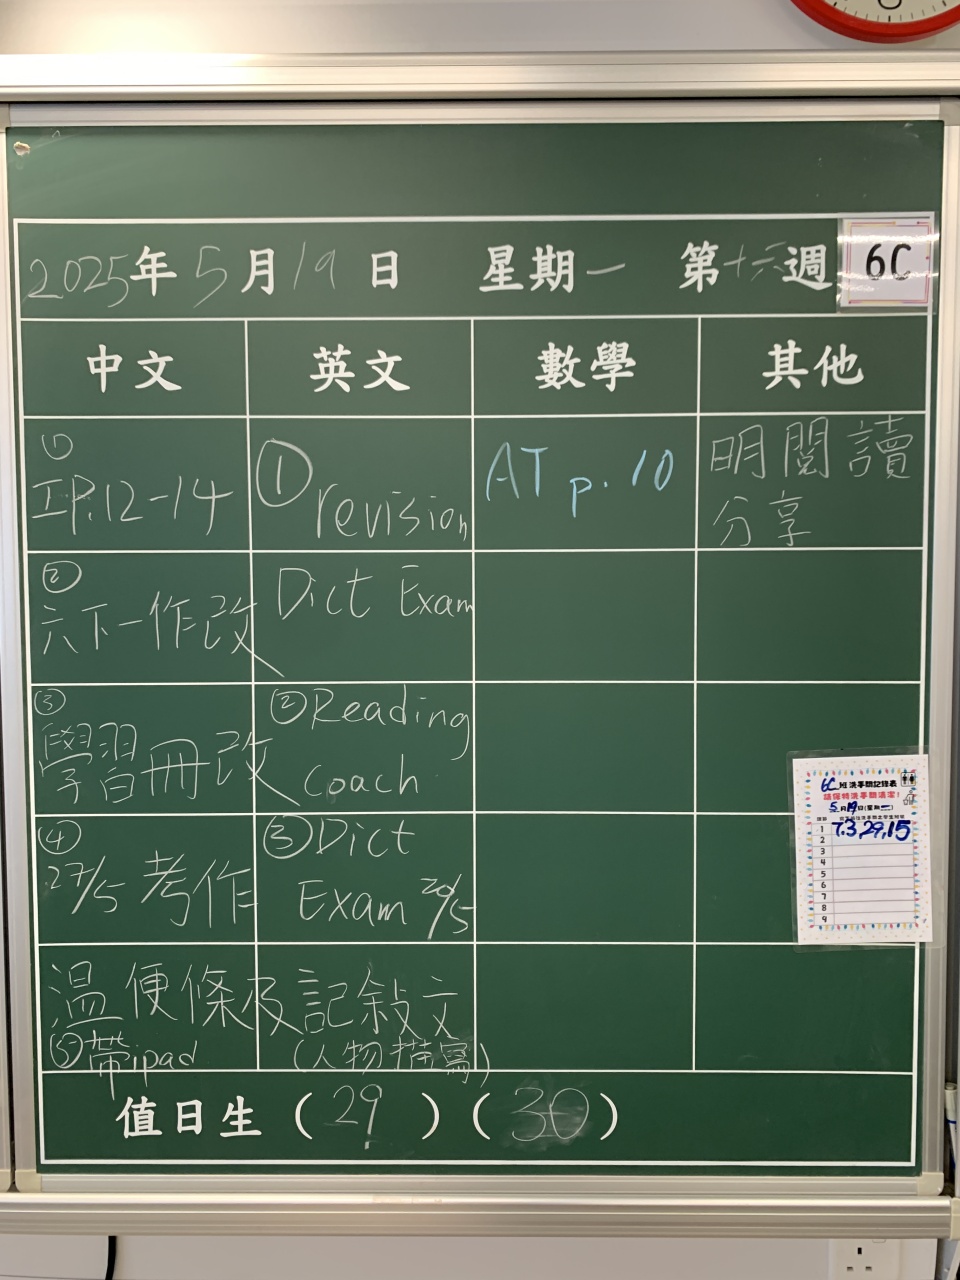 2025年5月19日 星期一 第十六週 6C
中文 英文 數學 其他
①
工P.12-14
②
六下一作改
③
學習冊改
④
27/5 考作
溫便條及記敍文
(人物描寫)
⑤帶ipad
①
revision
Dict Exam
②Reading
Coach
③Dict
Exam 20/5
AT p.10
明閱讀
分享
6C班洗手間記錄表
請保持洗手間清潔!
5月19日(星期一)
1 7,3,29,15
2
3
4
5
6
7
8
9
值日生(29)(30)